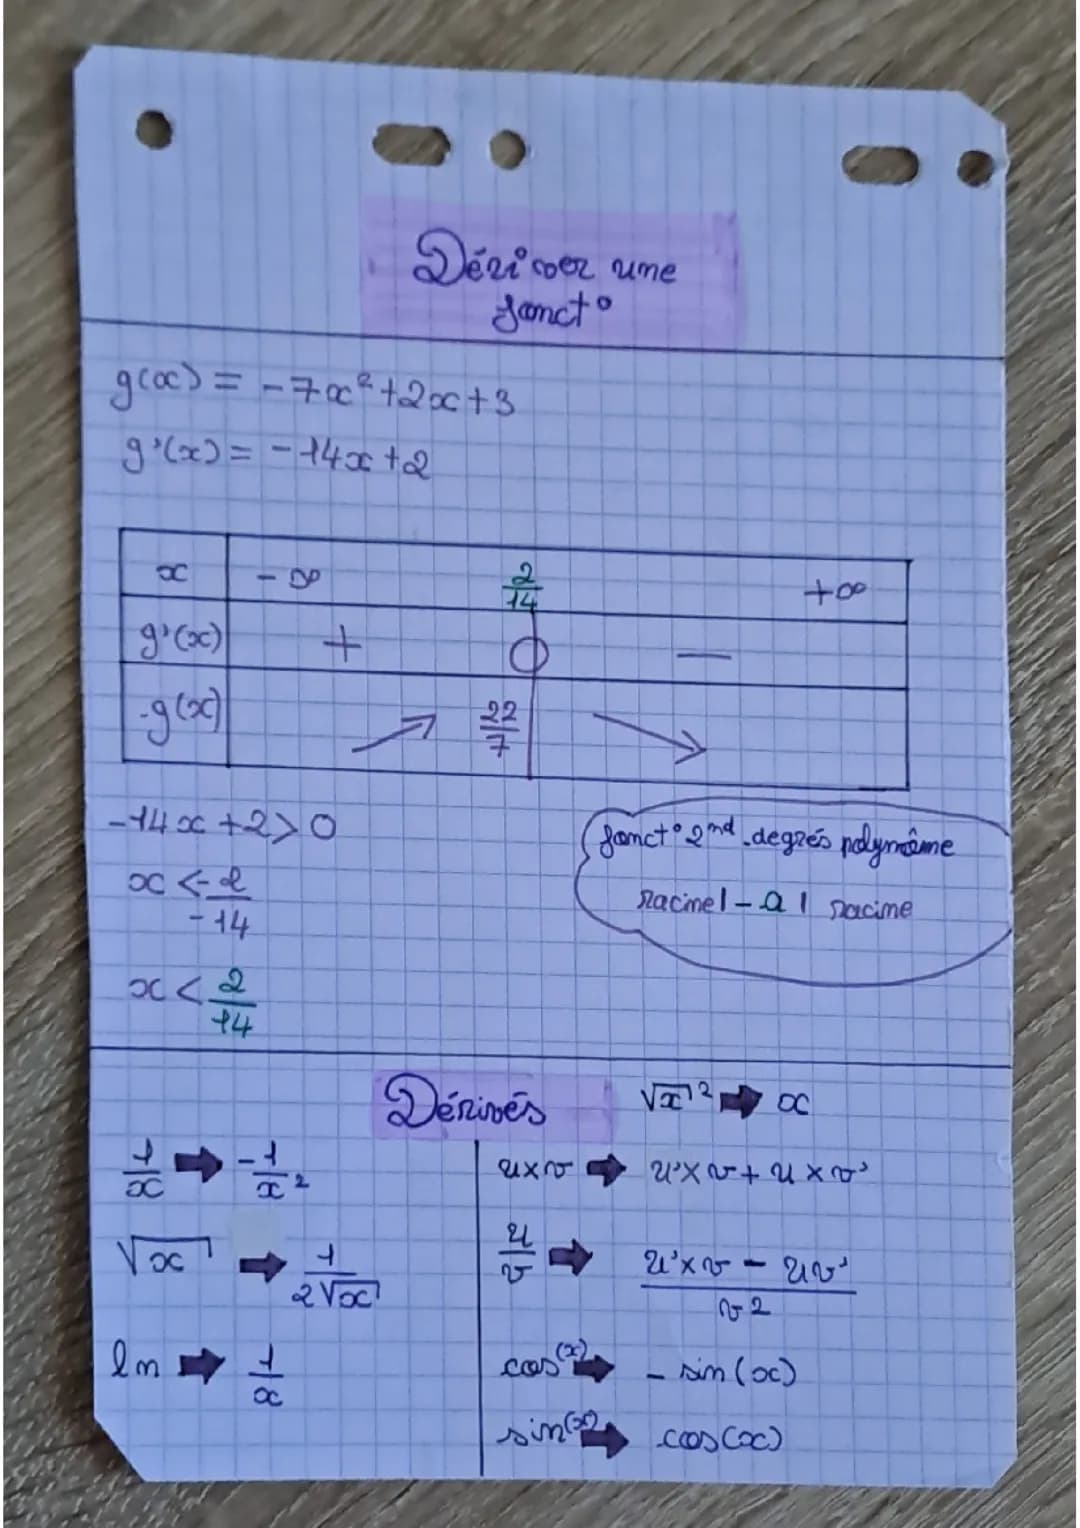 Dériver une
fonct°
g(x) = -7x²+2x+3
g'(x) = -14x+2
x -∞ 2/14 +∞
g'(x) + 0 -
g(x) ↗ 22/7 ↘
-14x+2>0
x < -2/-14
x < 2/14
fonct° 2nd degrés polynôme
racine | -a | racine
Dérivés
√x² ➡ x
1/x ➡ -1/x²
√x ➡ 1/2√x
ln ➡ 1/x
u×v ➡ u'×v+u×v'
u/v ➡ u'×v - uv'/v2
cos(x) ➡ - sin(x)
sin(x) ➡ cos(x)